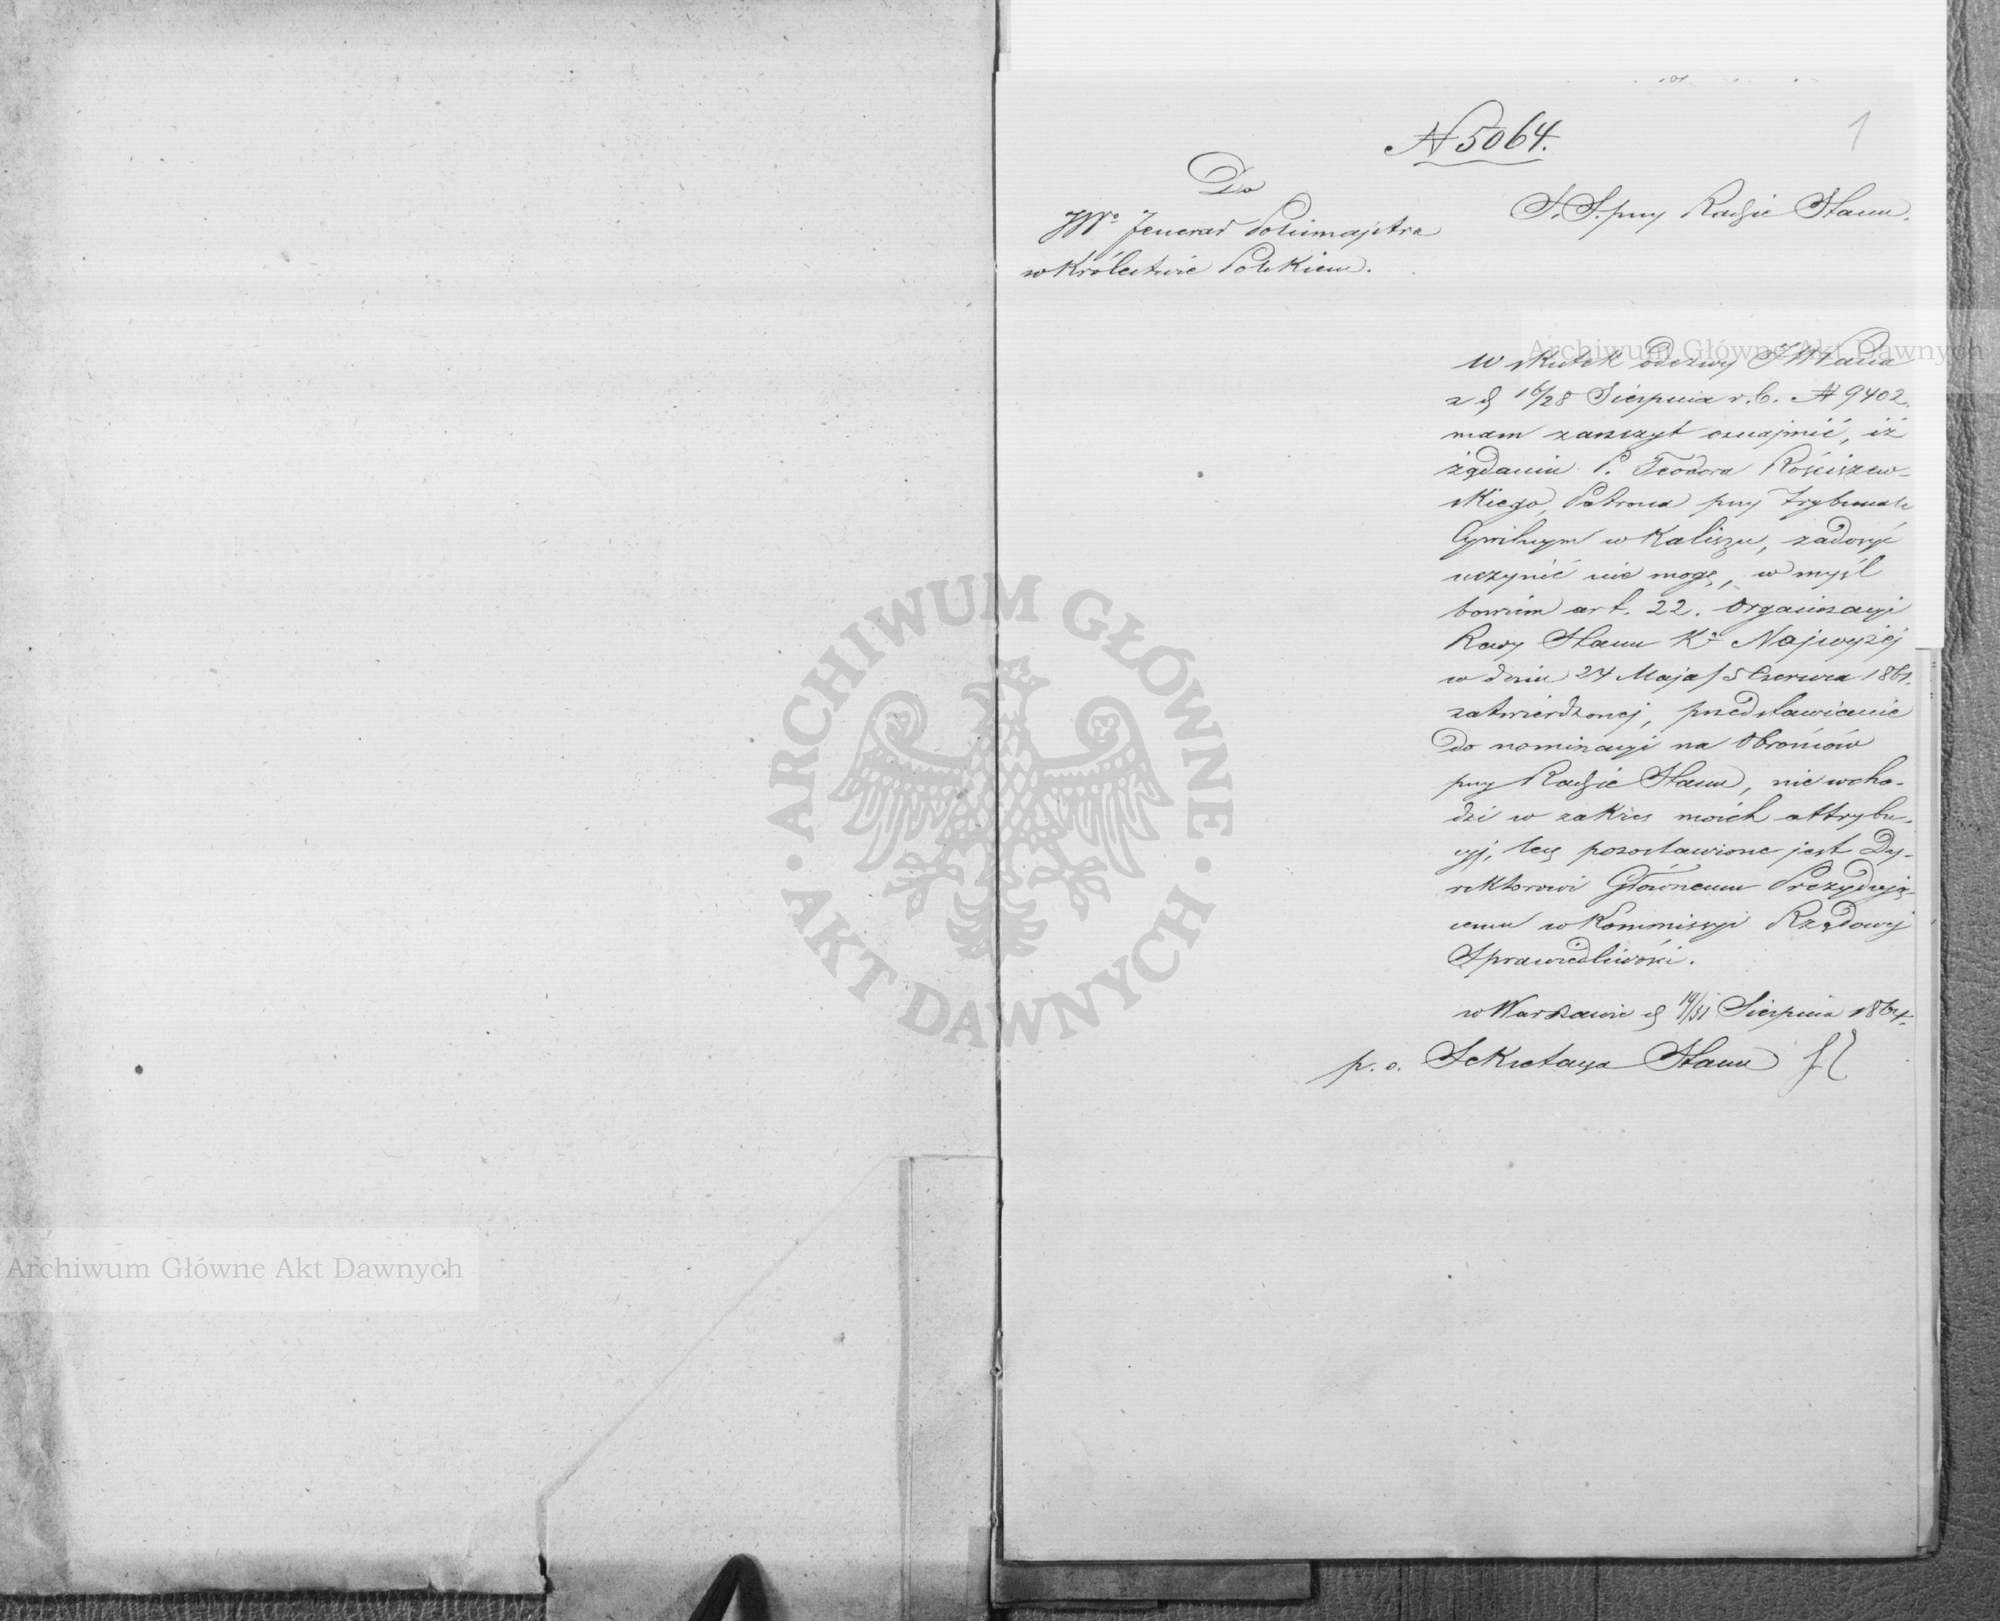 1
N 5064.
Do
JWo Jenerał Policmajstra
w Królestwie Polskiem.
S. S. przy Radzie Stanu.
W skutek odezwy JWPana
z d 16/28 Sierpnia r. b. N 9402.
mam zaszczyt oznajmić, iż
żądaniu P. Teodora Rościszew-
skiego, Patrona przy Trybunale
Cywilnym w Kaliszu, zadosyć
uczynić nie mogę, w myśl
bowiem art. 22. Organizacyi
Rady Stanu Kr Najwyżej
w dniu 24 Maja/5 Czerwca 1861.
zatwierdzonej, przedstawienie
do nominacyi na Obrońców
przy Radzie Stanu, nie wcho-
dzi w zakres moich attrybu-
cyj, lecz pozostawione jest Dy-
rektorowi Głównemu Prezydują-
cemu w Kommissyi Rządowej
Sprawiedliwości.
w Warszawie d 19/31 Sierpnia 1864.
p. o. Sekretarza Stanu
Archiwum Główne Akt Dawnych
ARCHIWUM GŁÓWNE · AKT DAWNYCH ·
Archiwum Główne Akt Dawnych